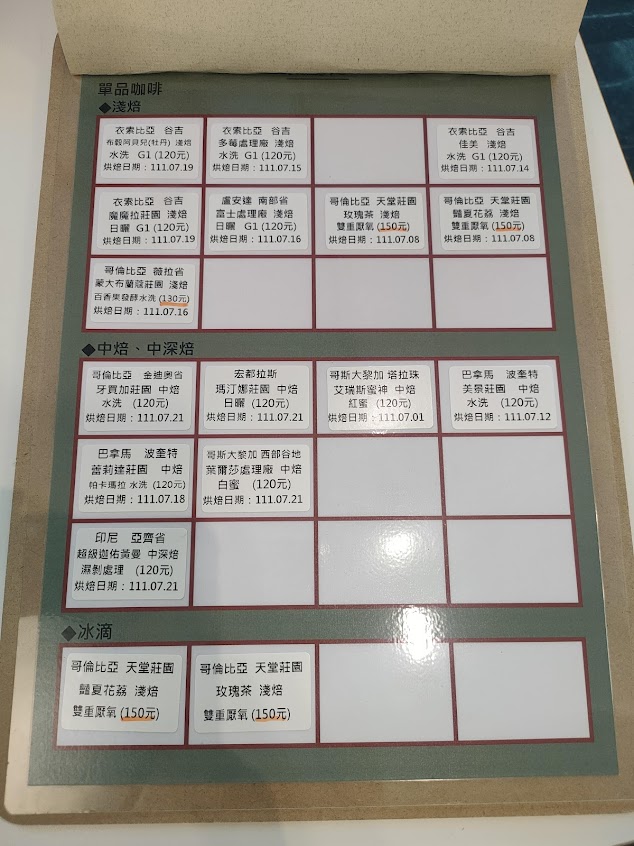 單品咖啡
◆淺焙
衣索比亞 谷吉
布穀阿貝兒(牡丹) 淺焙
水洗 G1 (120元)
烘焙日期：111.07.19
衣索比亞 谷吉
多莓處理廠 淺焙
水洗 G1 (120元)
烘焙日期：111.07.15
衣索比亞 谷吉
佳美 淺焙
水洗 G1 (120元)
烘焙日期：111.07.14
衣索比亞 谷吉
魔魔拉莊園 淺焙
日曬 G1 (120元)
烘焙日期：111.07.19
盧安達 南部省
富士處理廠 淺焙
日曬 G1 (120元)
烘焙日期：111.07.16
哥倫比亞 天堂莊園
玫瑰茶 淺焙
雙重厭氧 (150元)
烘焙日期：111.07.08
哥倫比亞 天堂莊園
豔夏花荔 淺焙
雙重厭氧 (150元)
烘焙日期：111.07.08
哥倫比亞 薇拉省
蒙大布蘭蔻莊園 淺焙
百香果發酵水洗 (130元)
烘焙日期：111.07.16
◆中焙、中深焙
哥倫比亞 金迪奧省
牙買加莊園 中焙
水洗 (120元)
烘焙日期：111.07.21
宏都拉斯
瑪汀娜莊園 中焙
日曬 (120元)
烘焙日期：111.07.21
哥斯大黎加 塔拉珠
艾瑞斯蜜神 中焙
紅蜜 (120元)
烘焙日期：111.07.01
巴拿馬 波奎特
芙景莊園 中焙
水洗 (120元)
烘焙日期：111.07.12
巴拿馬 波奎特
蕾莉達莊園 中焙
帕卡瑪拉 水洗 (120元)
烘焙日期：111.07.18
哥斯大黎加 西部谷地
葉爾莎處理廠 中焙
白蜜 (120元)
烘焙日期：111.07.21
印尼 亞齊省
超級迦佑黃曼 中深焙
濕剝處理 (120元)
烘焙日期：111.07.21
◆冰滴
哥倫比亞 天堂莊園
豔夏花荔 淺焙
雙重厭氧 (150元)
哥倫比亞 天堂莊園
玫瑰茶 淺焙
雙重厭氧 (150元)